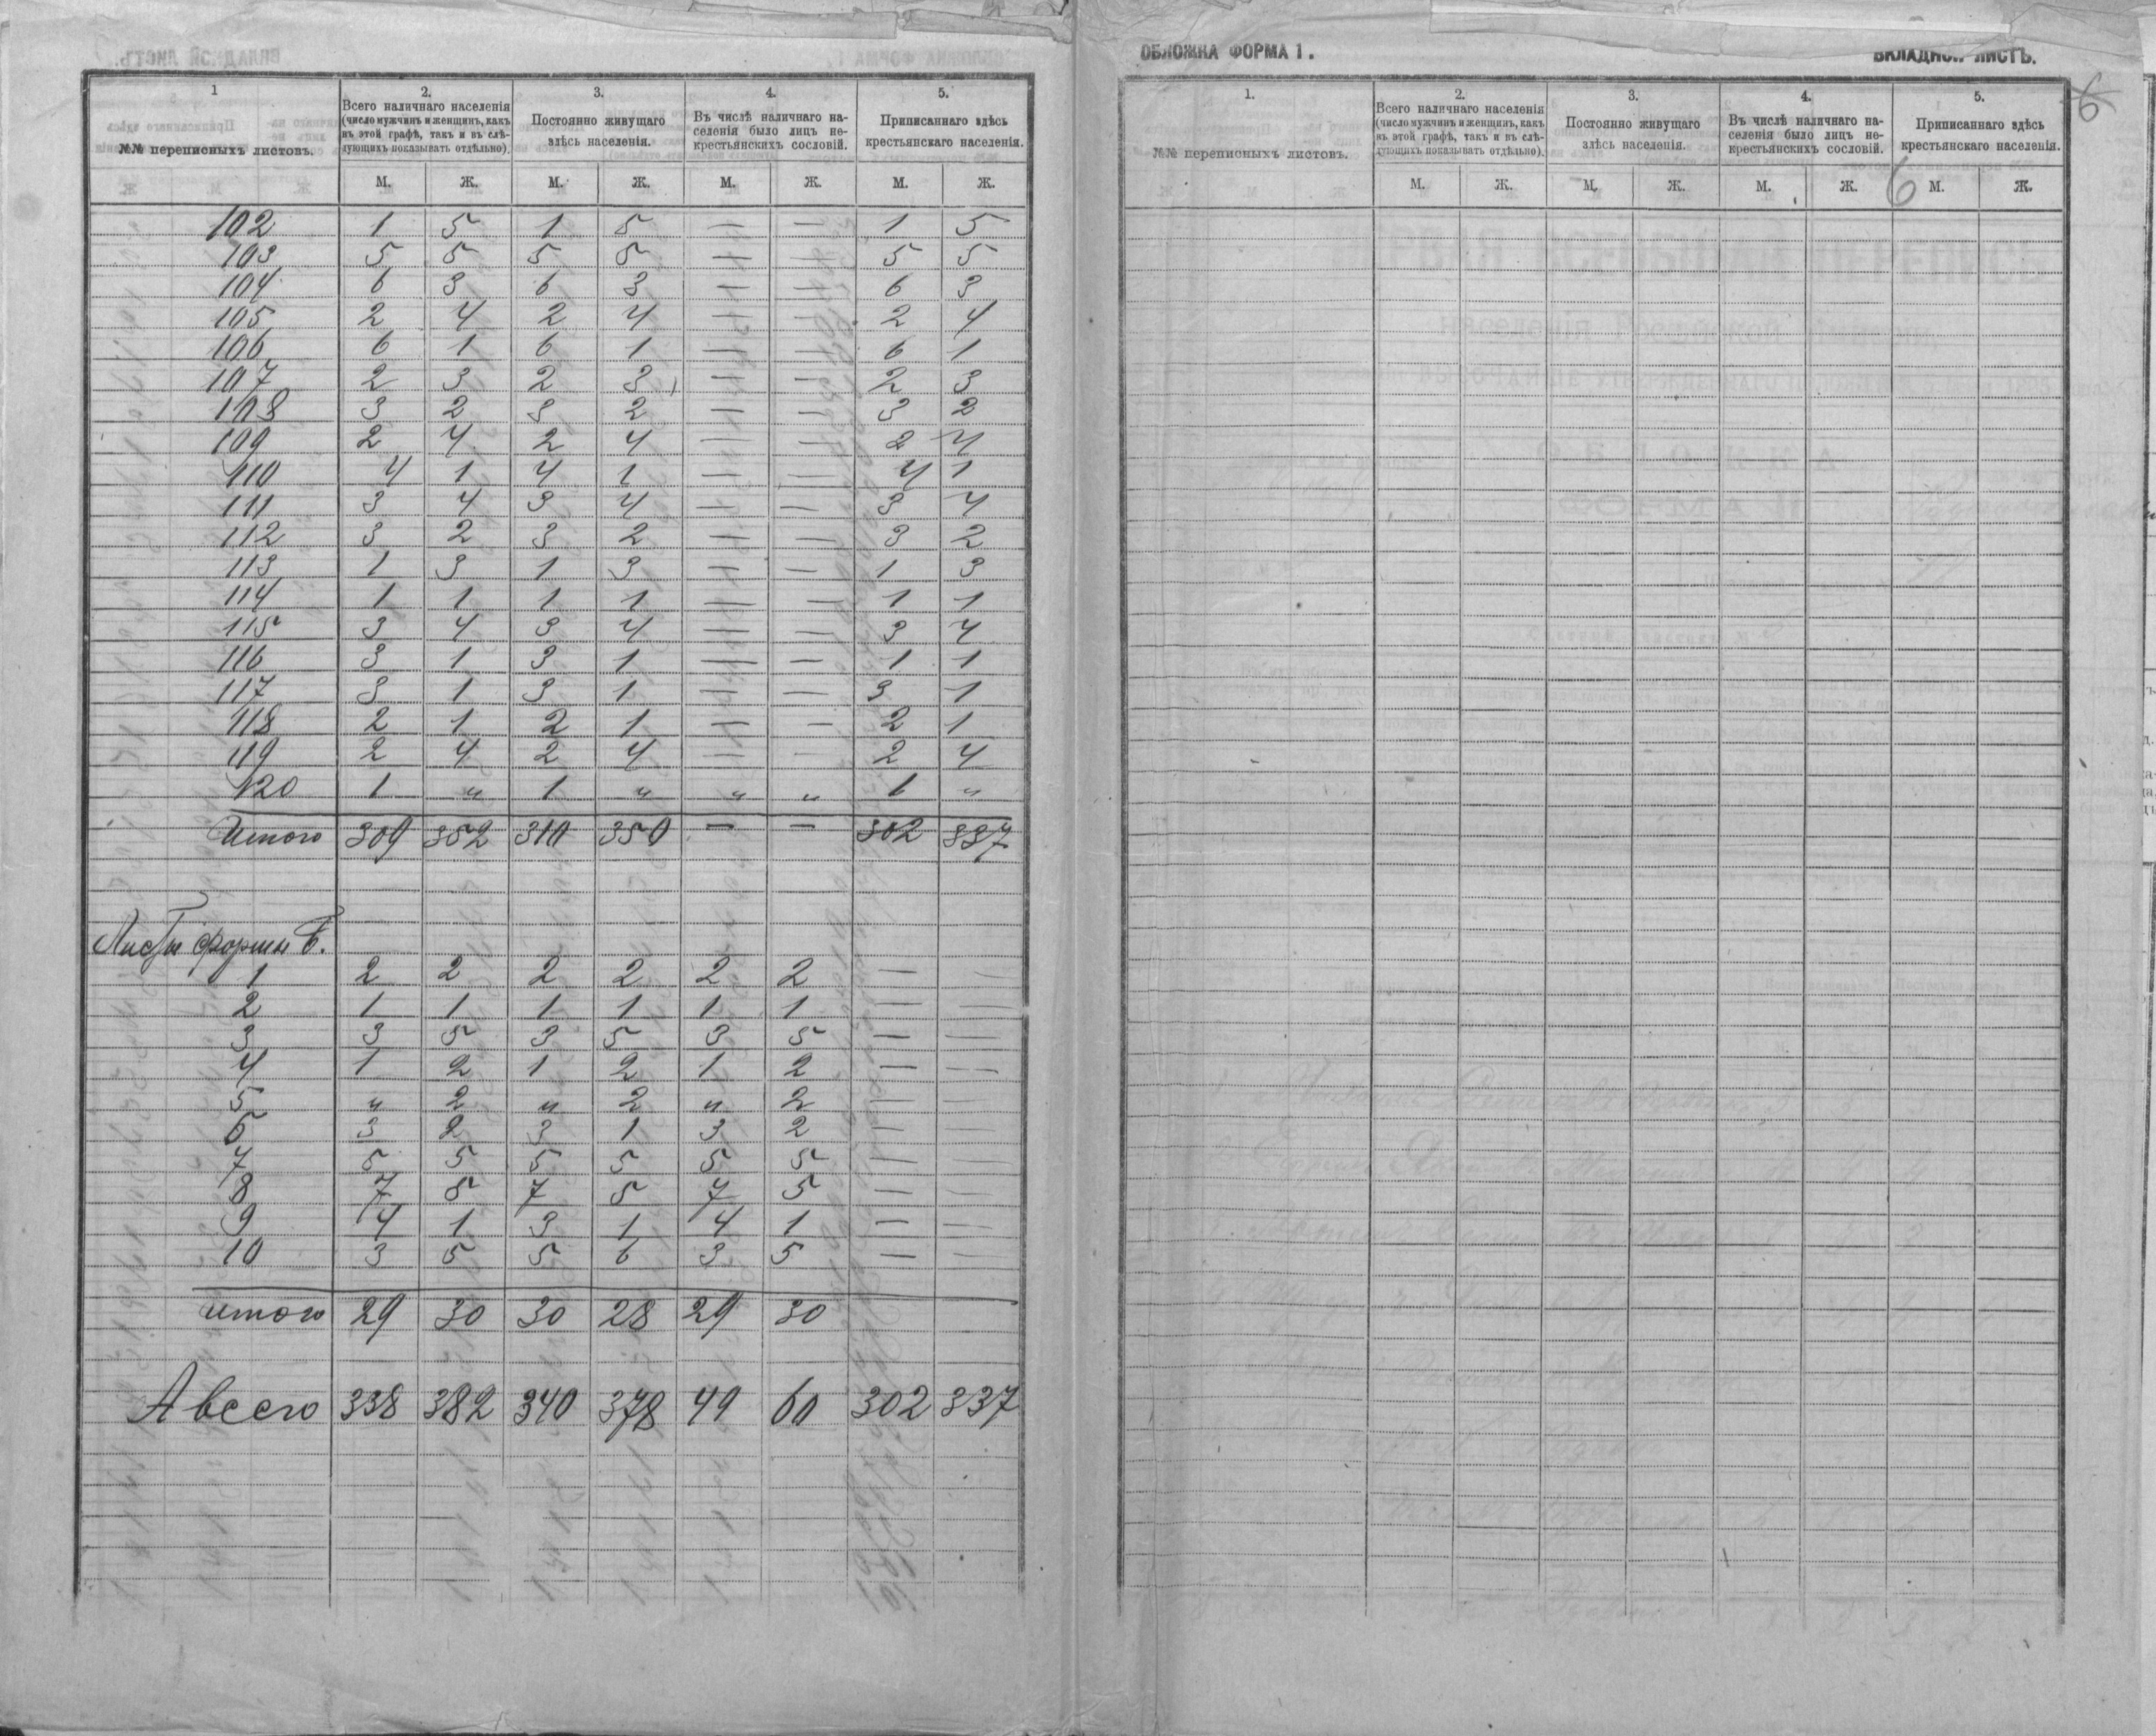 1
2.
3.
4.
5.
№№ переписныхъ листовъ.
Всего наличнаго населенія
(число мужчинъ и женщинъ, какъ
въ этой графѣ, такъ и въ слѣ-
дующихъ показывать отдѣльно).
Постоянно живущаго
здѣсь населенія.
Въ числѣ наличнаго на-
селенія было лицъ не-
крестьянскихъ сословій.
Приписаннаго здѣсь
крестьянскаго населенія.
М. Ж. М. Ж. М. Ж. М. Ж.
102 1 5 1 5 — — 1 5
103 5 5 5 5 — — 5 5
104 6 3 6 3 — — 6 3
105 2 4 2 4 — — 2 4
106 6 1 6 1 — — 6 1
107 2 3 2 3 — — 2 3
108 3 2 3 2 — — 3 2
109 2 4 2 4 — — 2 4
110 4 1 4 1 — — 4 1
111 3 4 3 4 — — 3 4
112 3 2 3 2 — — 3 2
113 1 3 1 3 — — 1 3
114 1 1 1 1 — — 1 1
115 3 4 3 4 — — 3 4
116 3 1 3 1 — — 1 1
117 3 1 3 1 — — 3 1
118 2 1 2 1 — — 2 1
119 2 4 2 4 — — 2 4
120 1 „ 1 „ „ „ 1 „
Итого 309 352 310 350 — — 302 337
Листы формы Б.
1 2 2 2 2 2 2 — —
2 1 1 1 1 1 1 — —
3 3 5 3 5 3 5 — —
4 1 2 1 2 1 2 — —
5 „ 2 „ 2 „ 2 — —
6 3 2 3 1 3 2 — —
7 5 5 5 5 5 5 — —
8 7 5 7 5 7 5 — —
9 4 1 3 1 4 1 — —
10 3 5 5 6 3 5 — —
итого 29 30 30 28 29 30
А всего 338 382 340 378 49 60 302 337
ОБЛОЖКА ФОРМА 1.
ВКЛАДНОЙ ЛИСТЪ.
6
1.
2.
3.
4.
5.
№№ переписныхъ листовъ.
Всего наличнаго населенія
(число мужчинъ и женщинъ, какъ
въ этой графѣ, такъ и въ слѣ-
дующихъ показывать отдѣльно).
Постоянно живущаго
здѣсь населенія.
Въ числѣ наличнаго на-
селенія было лицъ не-
крестьянскихъ сословій.
Приписаннаго здѣсь
крестьянскаго населенія.
М. Ж. М. Ж. М. Ж. М. Ж.
6